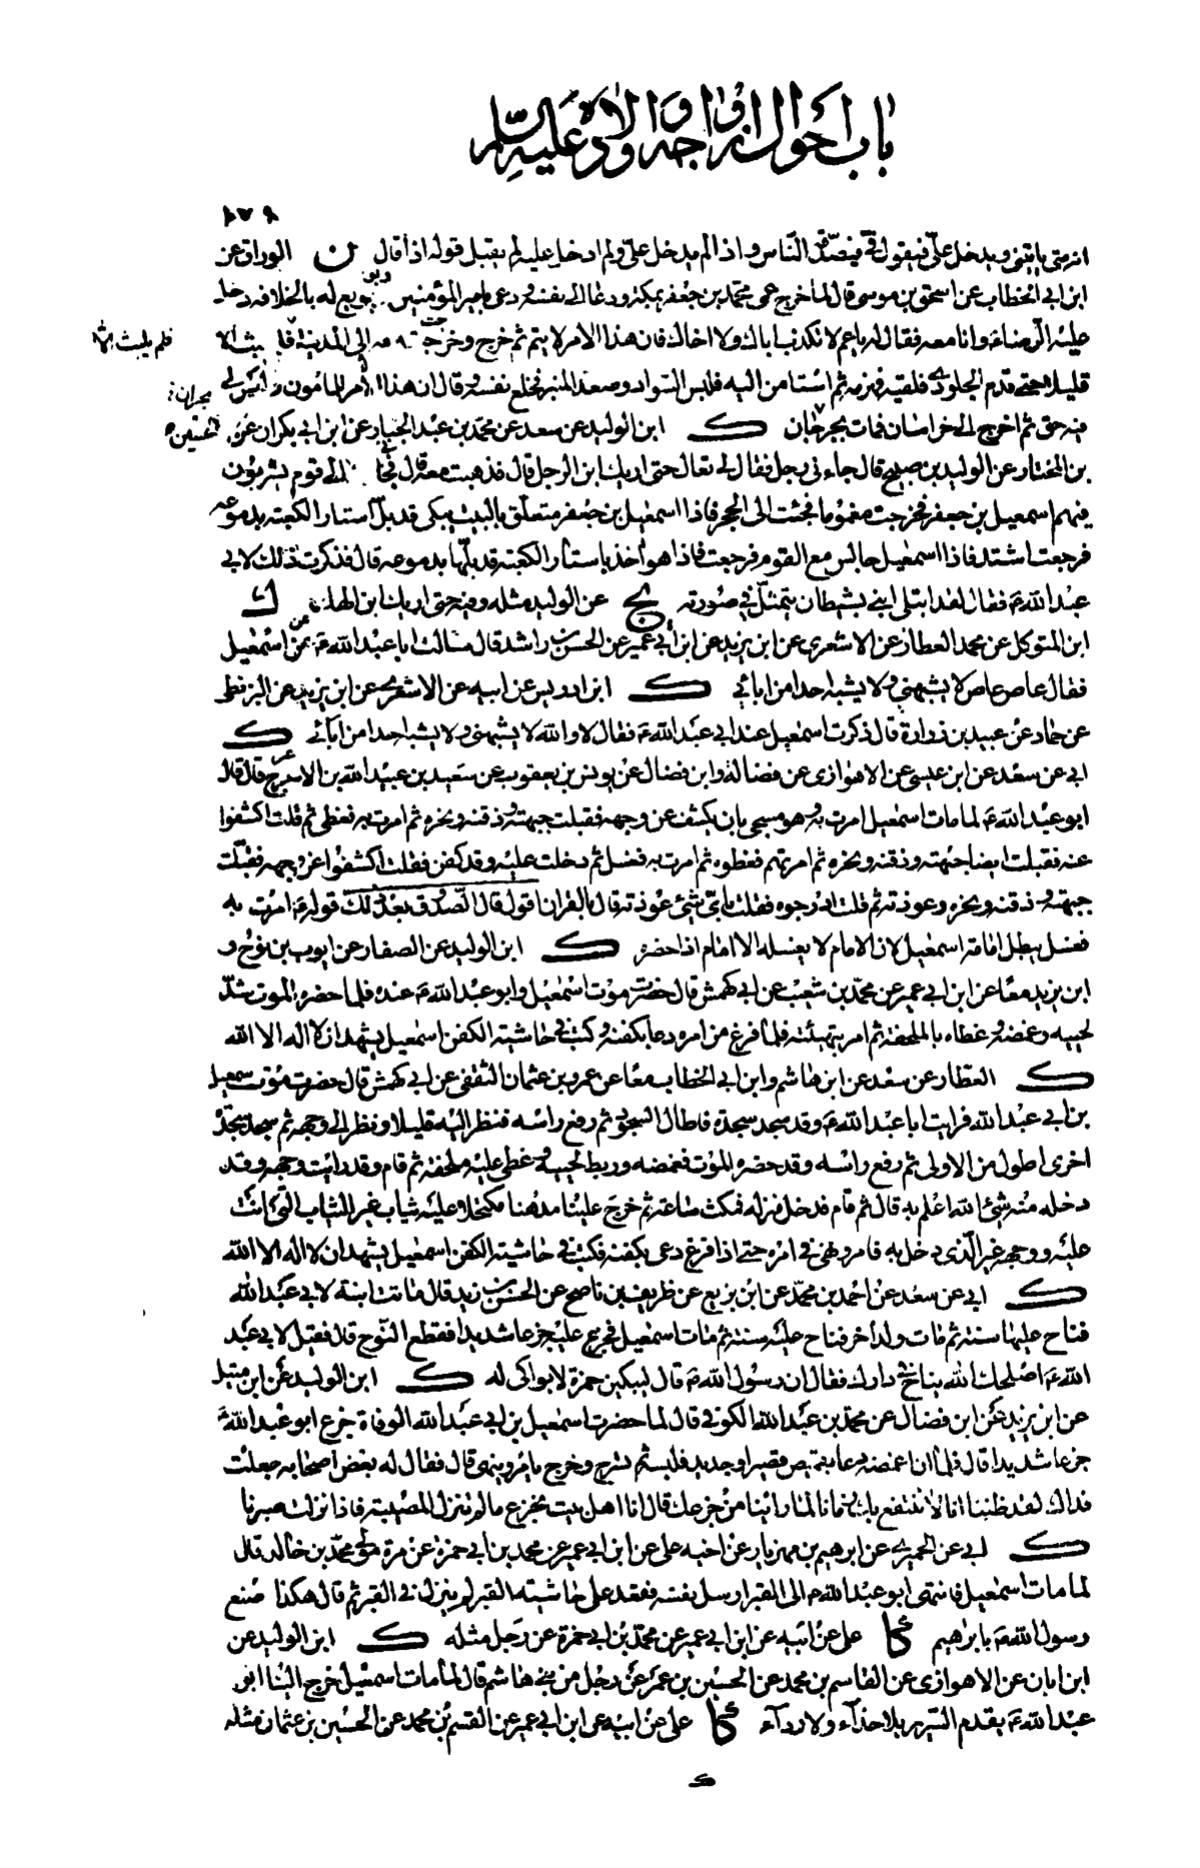 باب احوال ازواجه واولاده عليه السلام
١٧٩
انه متى يأتيني ويدخل علي فيقول في فيصدقه الناس واذا لم يدخل علي ولم ادخل عليه لم يقبل قوله اذا قال ن الوراق عن
ابن ابي الخطاب عن اسحق بن موسى قال لما خرج عمي محمد بن جعفر بمكة ودعا الى نفسه ودعي بامير المؤمنين وبويع له بالخلافة دخل
عليه الرضاء وانا معه فقال له يا عم لا تكذب اباك ولا اخاك فان هذا الامر لا يتم ثم خرج وخرجت معه الى المدينة فلم يلبث الا
فلم يلبث الا
قليلا حتى قدم الجلودي فلقيه فهزمه ثم استامن اليه فلبس السواد وصعد المنبر فخلع نفسه وقال ان هذا الامر للمأمون وليس لي
فيه حق ثم اخرج الى خراسان فمات بجرجان ك ابن الوليد عن سعد عن محمد بن عبد الجبار عن ابن ابي نجران عن
بن المختار عن الوليد بن صبيح قال جاءني رجل فقال لي تعال حتى اريك ابن الرجل قال فذهبت معه قال فجاء الى قوم يشربون
فيهم اسمعيل بن جعفر فخرجت مغموما فجئت الى الحجر فاذا اسمعيل بن جعفر متعلق بالبيت يبكي قد بل استار الكعبة بدموعه
فرجعت اشتد فاذا اسمعيل جالس مع القوم فرجعت فاذا هو اخذ باستار الكعبة قد بلها بدموعه قال فذكرت ذلك لابي
عبد الله ع فقال لقد ابتلي ابني بشيطان يتمثل في صورته يج عن الوليد مثله وفيه حتى اريك ابن الهك ك
ابن المتوكل عن محمد العطار عن الاشعري عن ابن يزيد عن ابن ابي عمير عن الحسن بن راشد قال سالت ابا عبد الله ع عن اسمعيل
فقال عاص عاص لا يشبهني ولا يشبه احدا من ابائي ك ابن ادريس عن ابيه عن الاشعري عن ابن يزيد عن البزنطي
عن حماد عن عبيد بن زرارة قال ذكرت اسمعيل عند ابي عبد الله ع فقال لا والله لا يشبهني ولا يشبه احدا من ابائي ك
ابي عن سعد عن ابن عيسى عن الاهوازي عن فضالة وابن فضال عن يونس بن يعقوب عن سعيد بن عبيد الله بن الاعرج قال قال
ابو عبد الله ع لما مات اسمعيل امرت به وهو مسجى بان يكشف عن وجهه فقبلت جبهته وذقنه ونحره ثم امرت به فغطي ثم قلت اكشفوا
عنه فقبلت ايضا جبهته وذقنه ونحره ثم امرتهم فغطوه ثم امرت به فغسل ثم دخلت عليه وقد كفن فقلت اكشفوا عن وجهه فقبلت
جبهته وذقنه ونحره وعوذته ثم قلت ادرجوه فقلت باي شيء عوذته قال بالقران اقول قال الصدوق بعد ذلك قوله ع امرت به
فغسل يبطل امامة اسمعيل لان الامام لا يغسله الا امام اذا حضره ك ابن الوليد عن الصفار عن ايوب بن نوح و
ابن يزيد معا عن ابن ابي عمير عن محمد بن شعيب عن ابي كهمش قال حضرت موت اسمعيل وابو عبد الله ع عنده فلما حضره الموت شد
لحييه وغمضه وغطاه بالملحفة ثم امر بتهيئته فلما فرغ من امره دعا بكفنه وكتب في حاشية الكفن اسمعيل يشهد ان لا اله الا الله
ك العطار عن سعد عن ابن هاشم وابن ابي الخطاب معا عن عمرو بن عثمان الثقفي عن ابي كهمش قال حضرت موت اسمعيل
بن ابي عبد الله فرايت ابا عبد الله ع وقد سجد سجدة فاطال السجود ثم رفع راسه فنظر اليه قليلا ونظر الى وجهه ثم سجد سجدة
اخرى اطول من الاولى ثم رفع راسه وقد حضره الموت فغمضه وربط لحييه وغطى عليه ملحفة ثم قام وقد رايت وجهه وقد
دخله منه شيء الله اعلم به قال ثم قام فدخل منزله فمكث ساعة ثم خرج علينا مدهنا مكتحلا عليه ثياب غير الثياب التي كانت
عليه ووجهه غير الذي دخل به فامر ونهى في امره حتى اذا فرغ دعى بكفنه فكتب في حاشية الكفن اسمعيل يشهد ان لا اله الا الله
ك ابي عن سعد عن احمد بن محمد عن ابن بزيع عن ظريف بن ناصح عن الحسن بن زيد قال ماتت ابنة لابي عبد الله
فناح عليها سنة ثم مات ولد اخر فناح عليه سنة ثم مات اسمعيل فجزع عليه جزعا شديدا فقطع النوح قال فقيل لابي عبد
الله ع اصلحك الله يناح في دارك فقال ان رسول الله ص قال لبيكين حمزة لا بواكي له ك ابن الوليد عن ابن متيل
عن ابن يزيد عن ابن فضال عن محمد بن عبد الله الكوفي قال لما حضرت اسمعيل بن ابي عبد الله الوفاة جزع ابو عبد الله ع
جزعا شديدا قال فلما ان اغمضه دعا بقميص قصير او جديد فلبسه ثم تسرح وخرج يامر وينهى قال فقال له بعض اصحابه جعلت
فداك لقد ظننا انا لا ننتفع بك زمانا لما راينا من جزعك قال انا اهل بيت نجزع ما لم تنزل المصيبة فاذا نزلت صبرنا
ك ابي عن الحميري عن ابرهيم بن مهزيار عن اخيه علي عن ابن ابي عمير عن محمد بن ابي حمزة عن مرة مولى محمد بن خالد قال
لما مات اسمعيل فانتهى ابو عبد الله ع الى القبر ارسل نفسه فقعد على حاشية القبر لم ينزل في القبر ثم قال هكذا صنع
رسول الله ص بابرهيم كا علي عن ابيه عن ابن ابي عمير عن محمد بن ابي حمزة عن رجل مثله ك ابن الوليد عن
ابن ابان عن الاهوازي عن القاسم بن محمد عن الحسين بن عمر عن رجل من بني هاشم قال لما مات اسمعيل خرج الينا ابو
عبد الله ع يقدم السرير بلا حذاء ولا رداء كا علي عن ابيه عن ابن ابي عمير عن القسم بن محمد عن الحسين بن عثمان مثله
ك